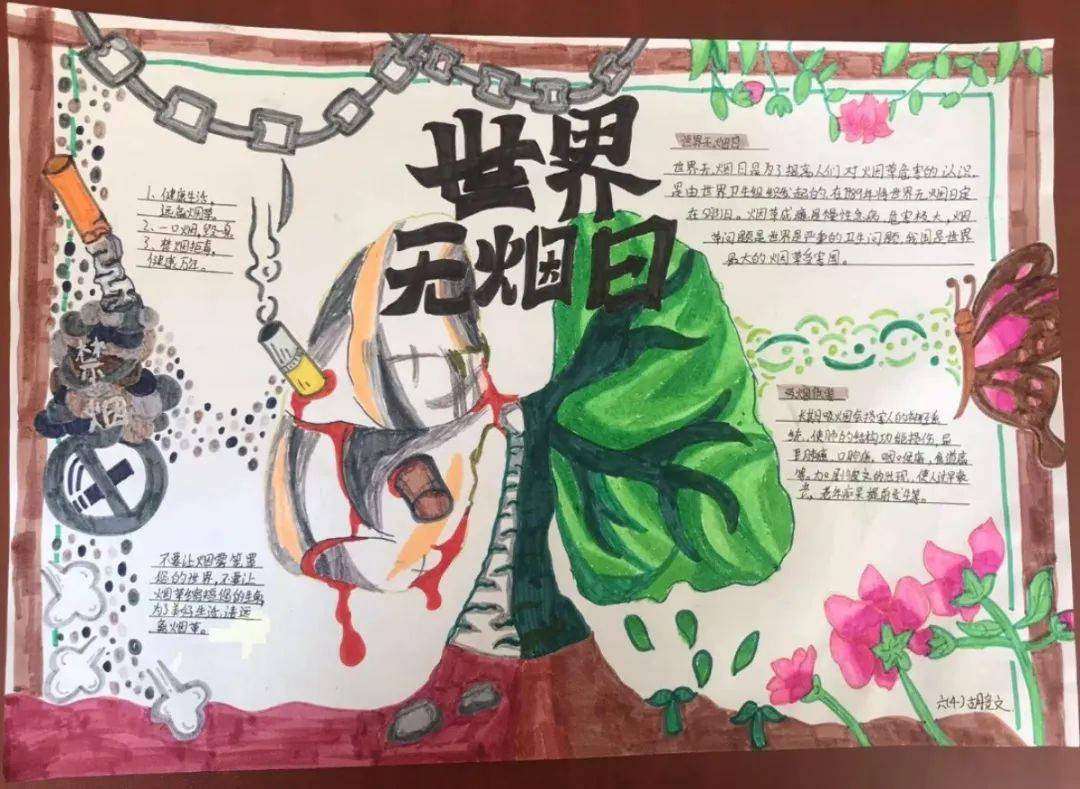 世界
无烟日
1、健康生活，
远离烟草。
2、一口烟，
3、禁烟拒毒，
健康万年。
禁
烟
不要让烟雾笼罩
您的世界，不要让
烟草缩短您的生命，
为了美好生活，请远
离烟草。
世界无烟日
世界无烟日是为了提高人们对烟草危害的认识，
是由世界卫生组织发起的，在1989年将世界无烟日定
在5月31日。烟草成瘾是慢性疾病，危害极大，烟
草问题是世界最严重的卫生问题，我国是世界
最大的烟草受害国。
吸烟危害
长期吸烟会损害人的呼吸系
统，使肺的结构功能损伤，甚
至肺癌，口腔癌，咽喉癌，食道癌
等。加剧皱纹的出现，使人过早衰
老，
六(4)胡